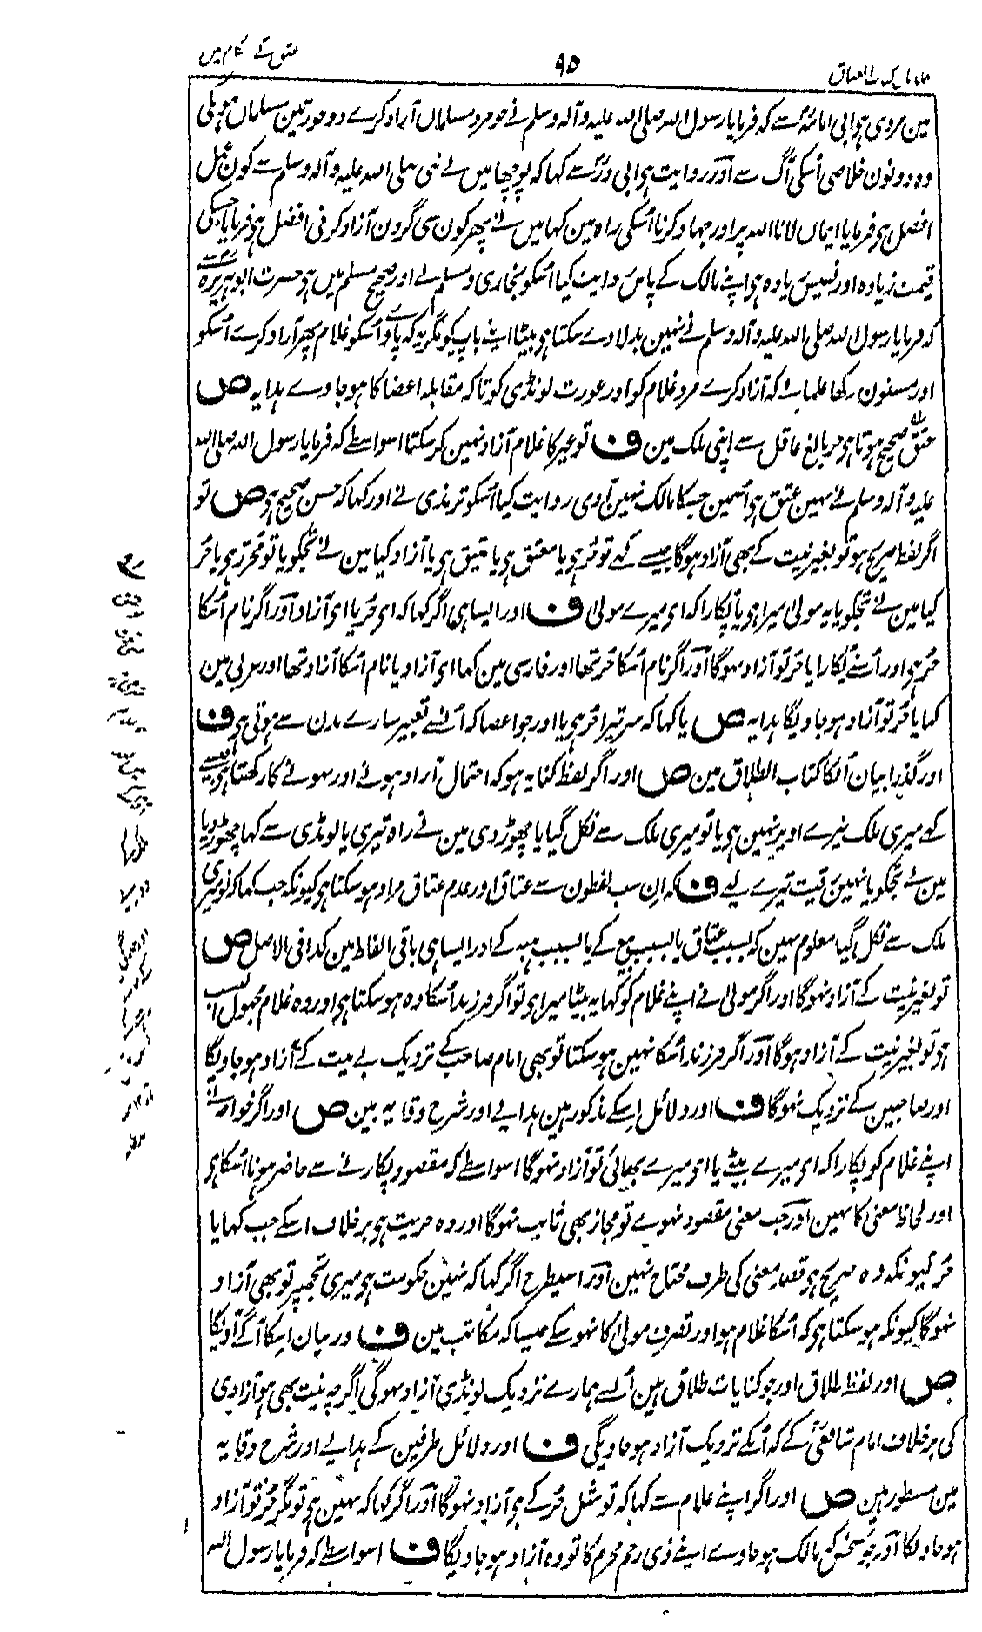 عتق کے کلام میں
۹۵
مین مروی ہو ابی امامہؓ سے کہ فرمایا رسول اللہ صلی اللہ علیہ وآلہ وسلم نے جو مرد مسلمان آزاد کرے دو عورتین مسلمان ہوگی
وہ دونون خلاصی اُسکی آگ سے اور روایت ہو ابی ذرؓ سے کہا کہ پوچھا میں نے نبی صلی اللہ علیہ وآلہ وسلم سے کون عمل
افضل ہو فرمایا ایمان لانا اللہ پر اور جہاد کرنا اُسکی راہ مین کہا میں نے پھر کون سی گردن آزاد کرنی افضل ہو فرمایا جسکی
قیمت زیادہ اور نفیس زیادہ ہو اپنے مالک کے پاس روایت کیا اُسکو بخاری و مسلم نے اور صحیح مسلم میں ہو حضرت ابو ہریرہؓ سے
کہ فرمایا رسول اللہ صلی اللہ علیہ وآلہ وسلم نے نہین بدلا دے سکتا ہو بیٹا اپنے باپ کو مگر یہ کہ پاوے اُسکو غلام پھر آزاد کرے اُسکو
اور مسنون رکھا علما نے کہ آزاد کرے مرد غلام کو اور عورت لونڈی کو تاکہ مقابلہ اعضا کا ہو جاوے ہدایہ ص
عتق صحیح ہوتا ہو حر بالغ عاقل سے اپنی ملک مین ف تو غیر کا غلام آزاد نہین کر سکتا اسواسطے کہ فرمایا رسول اللہ صلی اللہ
علیہ وآلہ وسلم نے نہین عتق ہو اُسمین جسکا مالک نہین آدمی روایت کیا اُسکو ترمذی نے اور کہا کہ حسن صحیح ہو ص تو
اگر لفظ صریح ہو تو بغیر نیت کے بھی آزاد ہوگا جیسے کہے تو حُر ہو یا معتق ہو یا عتیق ہو یا آزاد کیا مین نے تجکو یا تو محرّر ہو یا حُر
کیا مین نے تجکو یا یہ مولیٰ میرا ہو یا پکارا کہ ای میرے مولیٰ ف اور ایسا ہی اگر کہا کہ ای حُر یا ای آزاد اور اگر نام اُسکا
حُر ہو اور اُسنے پکارا یا حُر تو آزاد نہوگا اور اگر نام اُسکا حُر تھا اور فارسی مین کہا ای آزاد یا نام اُسکا آزاد تھا اور عربی مین
کہا یا حُر تو آزاد ہو جاویگا ہدایہ ص یا کہا کہ سر تیرا حُر ہو یا اور جو اعضا کہ اُنسے تعبیر سارے بدن سے ہوتی ہو ف
اور گذرا بیان اُنکا کتاب الطلاق مین ص اور اگر لفظ کنایہ ہو کہ احتمال آزاد ہونے اور نہونے کا رکھتا ہو جیسے
کہے میری ملک تیرے اوپر نہین ہو یا تو میری ملک سے نکل گیا یا چھوڑ دی مین نے راہ تیری یا لونڈی سے کہا چھوڑ دیا
مین نے تجکو یا نہین رقیت تیرے لیے ف کہ ان سب لفظون سے عتاق اور عدم عتاق مراد ہو سکتا ہو کیونکہ جب کہا کہ تو میری
ملک سے نکل گیا معلوم نہین کہ بسبب عتاق یا بسبب بیع کے یا بسبب ہبہ کے اور ایسا ہی باقی الفاظ مین کذا فی الاصل ص
تو بغیر نیت کے آزاد نہوگا اور اگر مولیٰ نے اپنے غلام کو کہا یہ بیٹا میرا ہو تو اگر فرزند اُسکا وہ ہو سکتا ہو اور وہ غلام مجہول النسب
ہو تو بغیر نیت کے آزاد ہوگا اور اگر فرزند اُسکا نہین ہو سکتا تو بھی امام صاحب کے نزدیک بے نیت کے آزاد ہو جاویگا
اور صاحبین کے نزدیک نہوگا ف اور دلائل اسکے مذکور ہین ہدایے اور شرح وقایہ مین ص اور اگر خواجہ نے
اپنے غلام کو پکارا کہ ای میرے بیٹے یا ای میرے بھائی تو آزاد نہوگا اسواسطے کہ مقصود پکارنے سے حاضر ہونا اُسکا ہو
اور لحاظ معنی کا نہین اور جب معنی مقصود نہوے تو مجاز بھی ثابت نہوگا اور وہ حریت ہو برخلاف اسکے جب کہا یا
حُر کیونکہ وہ صریح ہو قصد معنی کی طرف محتاج نہین اور اسیطرح اگر کہا کہ نہین حکومت ہو میری تجپر تو بھی آزاد
نہوگا کیونکہ ہو سکتا ہو کہ اُسکا غلام ہو اور تصرف مولیٰ کا نہو سکے جیسا کہ مکاتب مین ف اور بیان اسکا آگے آویگا
ص اور لفظ طلاق اور جو کنایات طلاق ہین اُنسے ہمارے نزدیک لونڈی آزاد نہوگی اگرچہ نیت بھی ہو آزادی
کی برخلاف امام شافعیؒ کے کہ اُنکے نزدیک آزاد ہو جاویگی ف اور دلائل طرفین کے ہدایے اور شرح وقایہ
مین مسطور ہین ص اور اگر اپنے غلام سے کہا کہ تو مثل حُر کے ہو آزاد نہوگا اور اگر کہا کہ نہین ہو تو مگر حُر تو آزاد
ہو جاویگا اور جو شخص کہ مالک ہو جاوے اپنے ذی رحم محرم کا تو وہ آزاد ہو جاویگا ف اسواسطے کہ فرمایا رسول اللہ